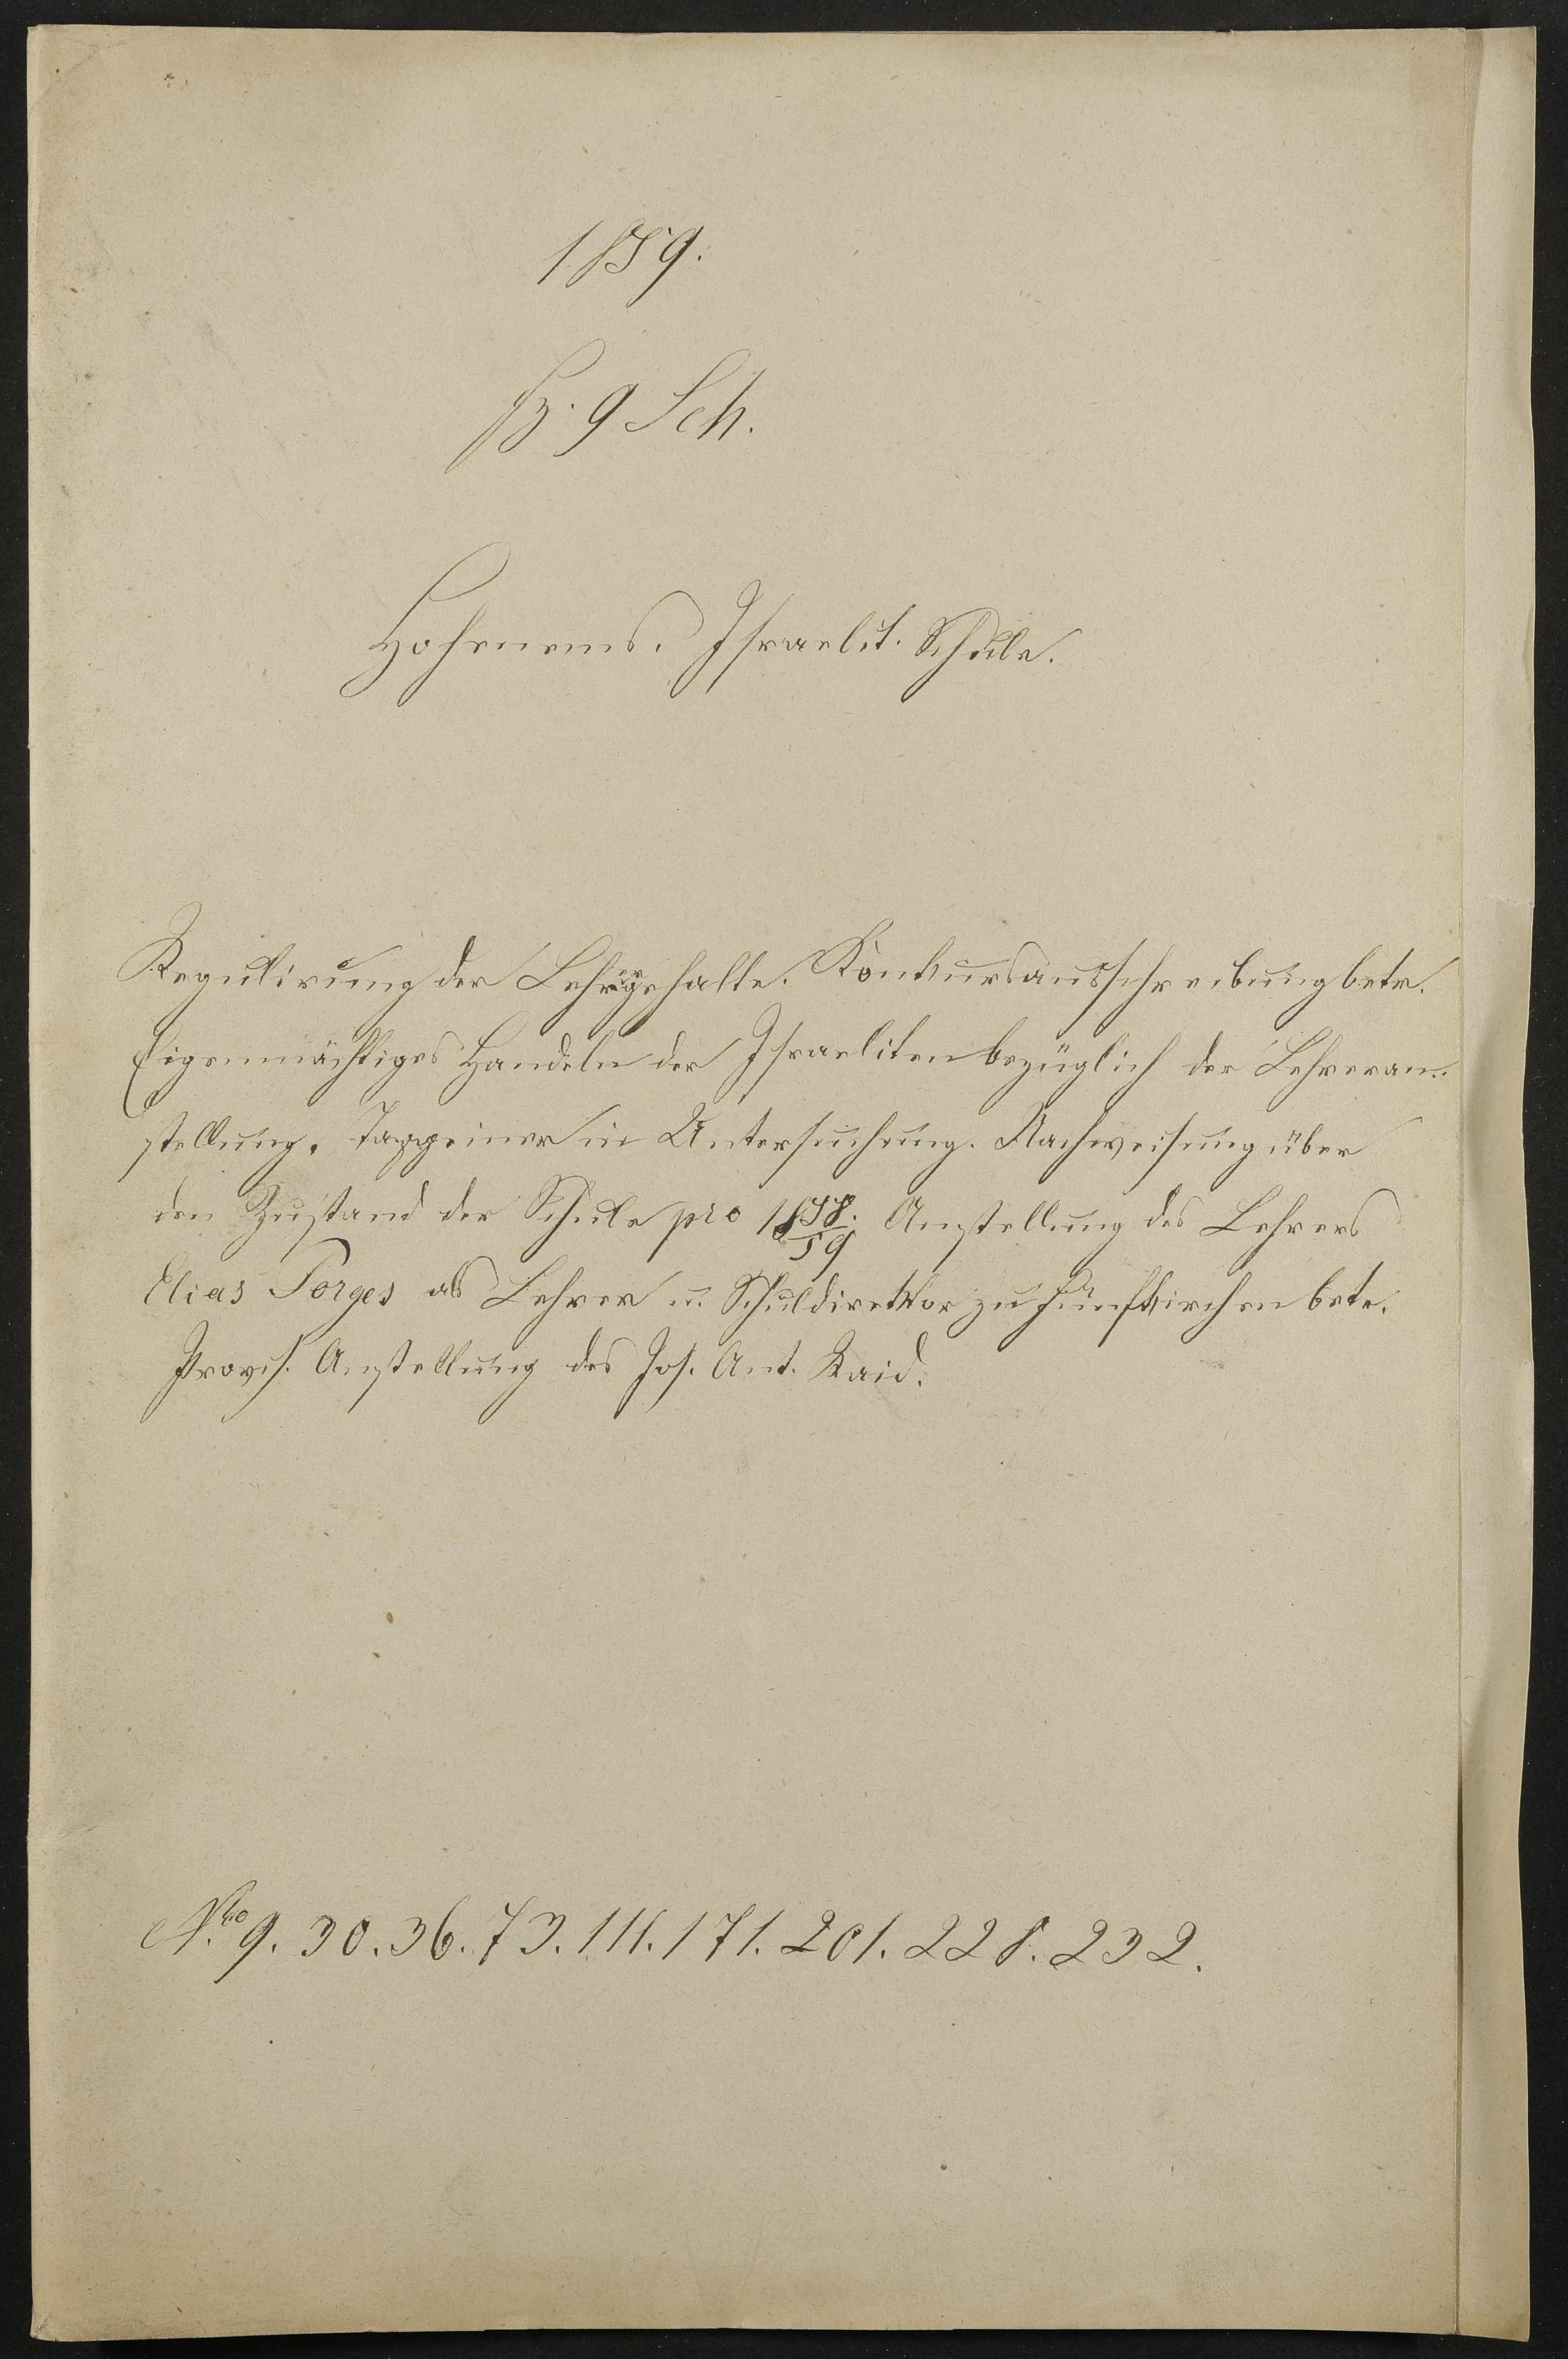 1859.
H. 9 Sch.
Hohenems. Israelit. Schule.
Regulirung der Lehrergehalte. Konkursausschreibung betr.
Eigenmächtiges Handeln der Israeliten bezüglich der Lehreran-
stellung. Tappeiner in Untersuchung. Nachweisung über
den Zustand der Schule pro 1858/59. Anstellung des Lehrers
Elias Porges als Lehrer u. Schuldirektor zu Fünfkirchen betr.
Provis. Anstellung des Jos. Ant. Kaid.
Nro 9. 30. 36. 73. 111. 171. 201. 228. 232.